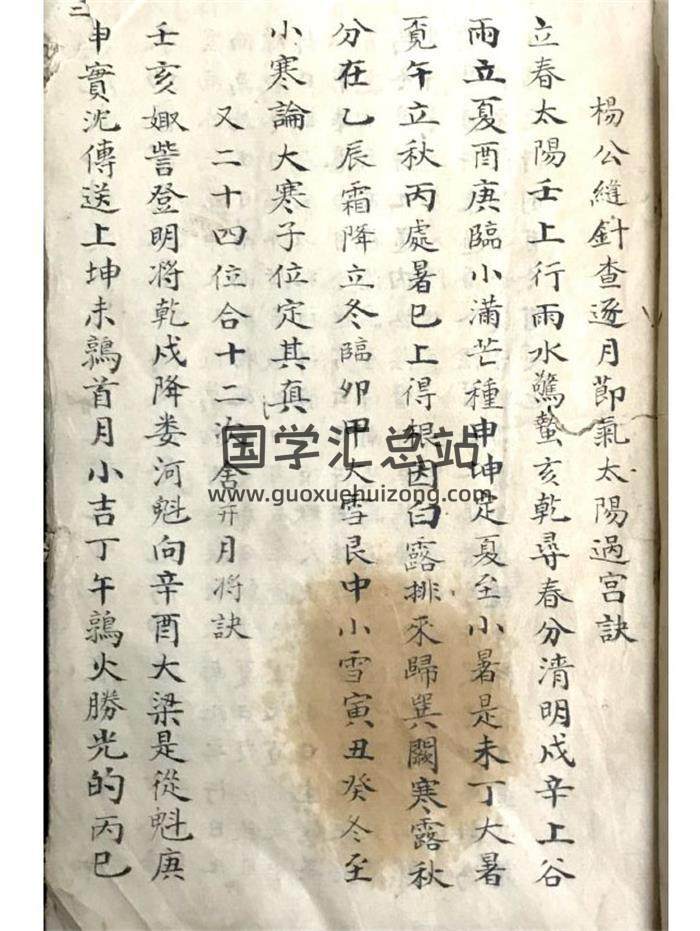 楊公縫針查逐月節氣太陽過宮訣
立春太陽壬上行雨水驚蟄亥乾尋春分清明戍辛上谷
雨立夏酉庚臨小滿芒種申坤足夏至小暑是未丁大暑
覔午立秋丙處暑巳上得根因白露排來歸巽闕寒露秋
分在乙辰霜降立冬臨卯甲大雪艮中小雪寅丑癸冬至
小寒論大寒子位定其真
又二十四位合十二舍并月将訣
壬亥娵訾登明将乾戍降娄河魁向辛酉大梁是從魁庚
申實沈傳送上坤未鶉首月小吉丁午鶉火勝光的丙巳
三
国学汇总站
www.guoxuehuizong.com